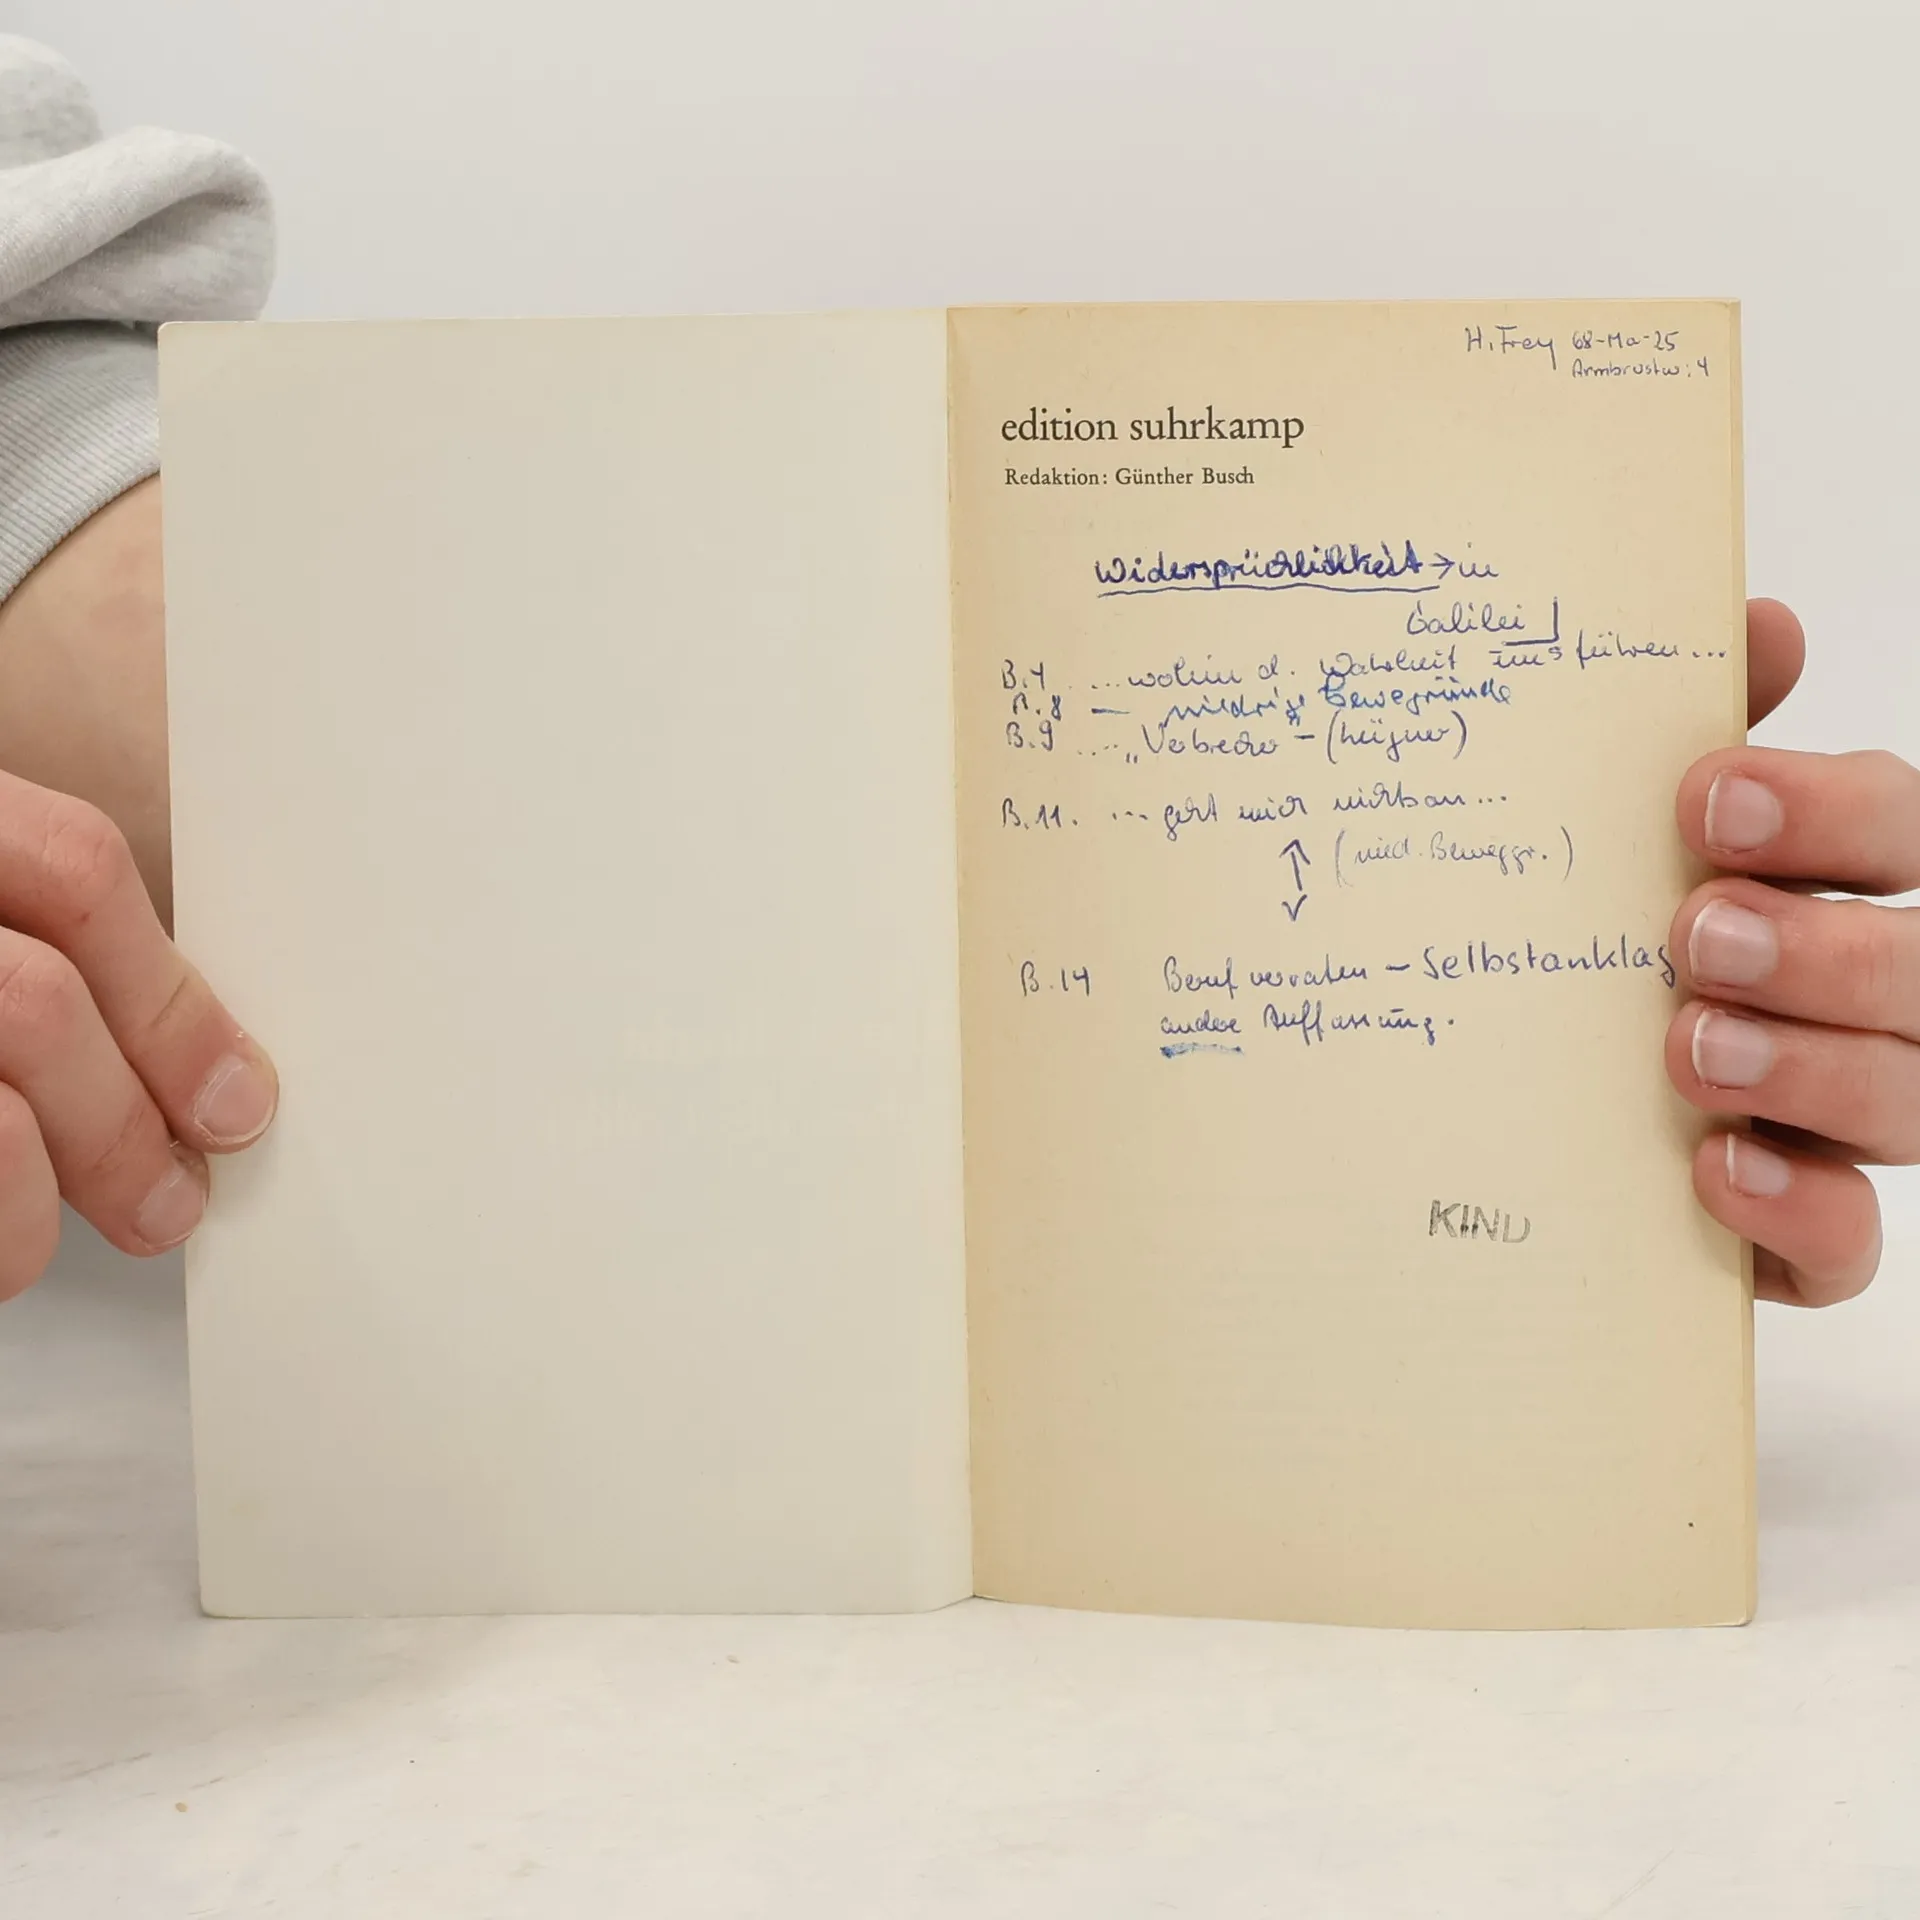 H. Frey 68-Ma-25
Armbrustw: 4
edition suhrkamp
Redaktion: Günther Busch
Widersprüchlichkeit → in
Galilei
B.4 ... wohin d. Wahrheit uns führen ...
B.8 — niedrige Beweggründe
B.9 .... „Verbrecher" – (Lügner)
B.11. ... geht mich nichts an ...
(nied. Beweggr.)
B.14 Beruf verraten – Selbstanklag
andere Auffassung.
KIND